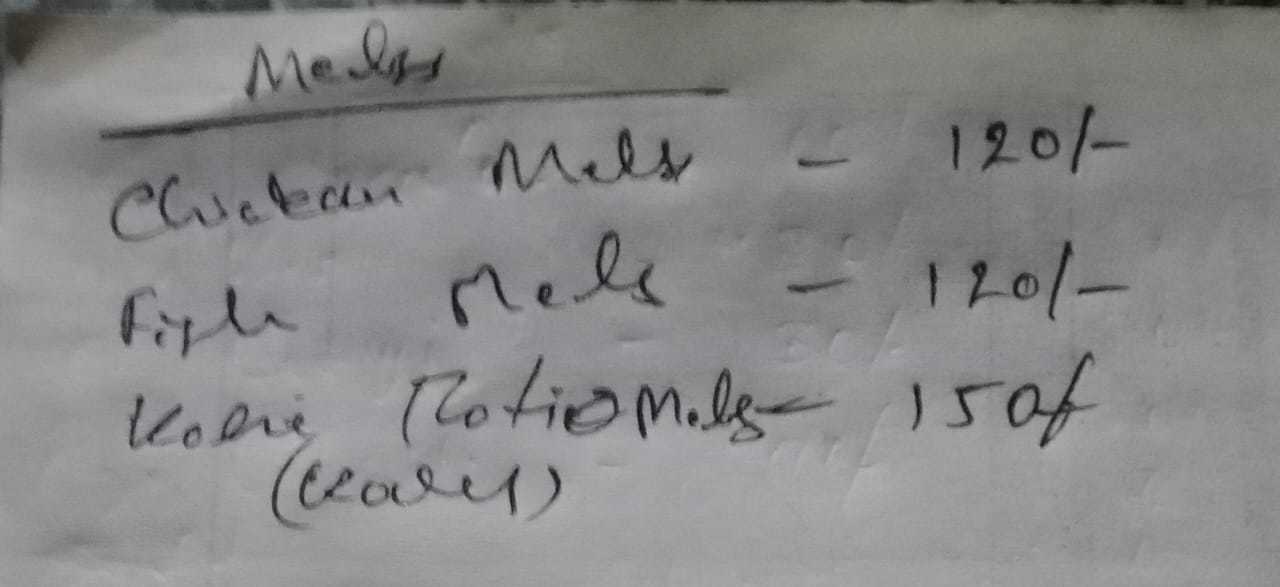 Meals
Chicken Mels - 120/-
Fish Mels - 120/-
Kori Rotio Mels - 150/-